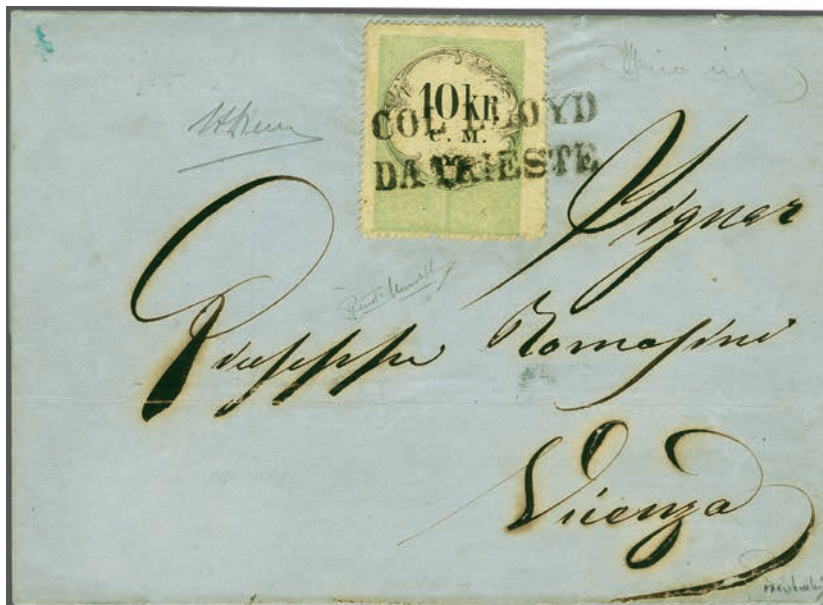 10 kr.
C. M.
COL LLOYD
DA TRIESTE
Signor
Giuseppe Tomasini
Vicenza